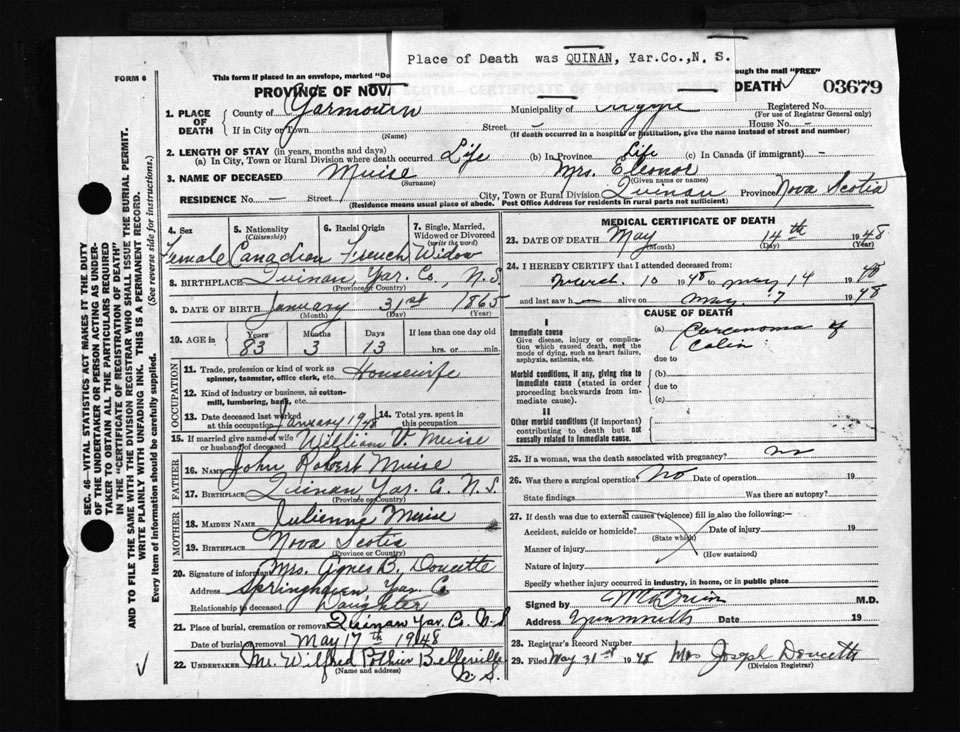 Place of Death was QUINAN, Yar.Co.,N. S.
FORM 6
This form if placed in an envelope, marked "Do
through the mail "FREE"
PROVINCE OF NOVA SCOTIA—CERTIFICATE OF REGISTRATION OF DEATH
03679
1. PLACE OF DEATH County of Yarmouth Municipality of Argyle Registered No.
(For use of Registrar General only)
If in City or Town Street - House No. -
(Name) (If death occurred in a hospital or institution, give the name instead of street and number)
2. LENGTH OF STAY (in years, months and days)
(a) In City, Town or Rural Division where death occurred Life (b) In Province Life (c) In Canada (if immigrant) -
3. NAME OF DECEASED Muise Mrs. Eleonor
(Surname) (Given name or names)
RESIDENCE No. - Street City, Town or Rural Division Quinan Province Nova Scotia
(Residence means usual place of abode. Post Office Address for residents in rural parts not sufficient)
4. Sex 5. Nationality (Citizenship) 6. Racial Origin 7. Single, Married, Widowed or Divorced (write the word)
Female Canadian French Widow
8. BIRTHPLACE Quinan, Yar. Co., N.S.
(Province or Country)
9. DATE OF BIRTH January 31st 1865
(Month) (Day) (Year)
10. AGE in Years Months Days If less than one day old
83 3 13 hrs. or min.
OCCUPATION
11. Trade, profession or kind of work as spinner, teamster, office clerk, etc. Housewife
12. Kind of industry or business, as cotton-mill, lumbering, bank, etc.
13. Date deceased last worked at this occupation January 1948 14. Total yrs. spent in this occupation
15. If married give name of wife or husband of deceased William V. Muise
FATHER
16. NAME John Robert Muise
17. BIRTHPLACE Quinan Yar. Co. N.S.
(Province or Country)
MOTHER
18. MAIDEN NAME Julienne Muise
19. BIRTHPLACE Nova Scotia
(Province or Country)
20. Signature of informant Mrs. Agnes B. Doucette
Address Springhaven, Yar. Co
Relationship to deceased Daughter
21. Place of burial, cremation or removal Quinan Yar. Co. N.S
Date of burial or removal May 17th 1948
22. UNDERTAKER Mr. Wilfred Pothier Belleville
(Name and address) N.S.
MEDICAL CERTIFICATE OF DEATH
23. DATE OF DEATH May 14th 1948
(Month) (Day) (Year)
24. I HEREBY CERTIFY that I attended deceased from:
March 10 1948 to May 14 1948
and last saw h- alive on May 7 1948
CAUSE OF DEATH
I
Immediate cause
Give disease, injury or complication which caused death, not the mode of dying, such as heart failure, asphyxia, asthenia, etc.
(a) Carcinoma of
Colin
due to
Morbid conditions, if any, giving rise to immediate cause (stated in order proceeding backwards from immediate cause).
(b)
due to
(c)
II
Other morbid conditions (if important) contributing to death but not causally related to immediate cause.
25. If a woman, was the death associated with pregnancy? no
26. Was there a surgical operation? No Date of operation 19
State findings Was there an autopsy?
27. If death was due to external causes (violence) fill in also the following:—
Accident, suicide or homicide? Date of injury 19
(State which)
Manner of injury
(How sustained)
Nature of injury
Specify whether injury occurred in industry, in home, or in public place
Signed by M.D.
Address Yarmouth Date 19
28. Registrar's Record Number
29. Filed May 31st 1948 Mrs Joseph Doucette
(Division Registrar)
SEC. 46—VITAL STATISTICS ACT MAKES IT THE DUTY
OF THE UNDERTAKER OR PERSON ACTING AS UNDER-
TAKER TO OBTAIN ALL THE PARTICULARS REQUIRED
IN THE "CERTIFICATE OF REGISTRATION OF DEATH"
AND TO FILE THE SAME WITH THE DIVISION REGISTRAR WHO SHALL ISSUE THE BURIAL PERMIT.
WRITE PLAINLY WITH UNFADING INK. THIS IS A PERMANENT RECORD.
Every item of information should be carefully supplied. (See reverse side for instructions.)